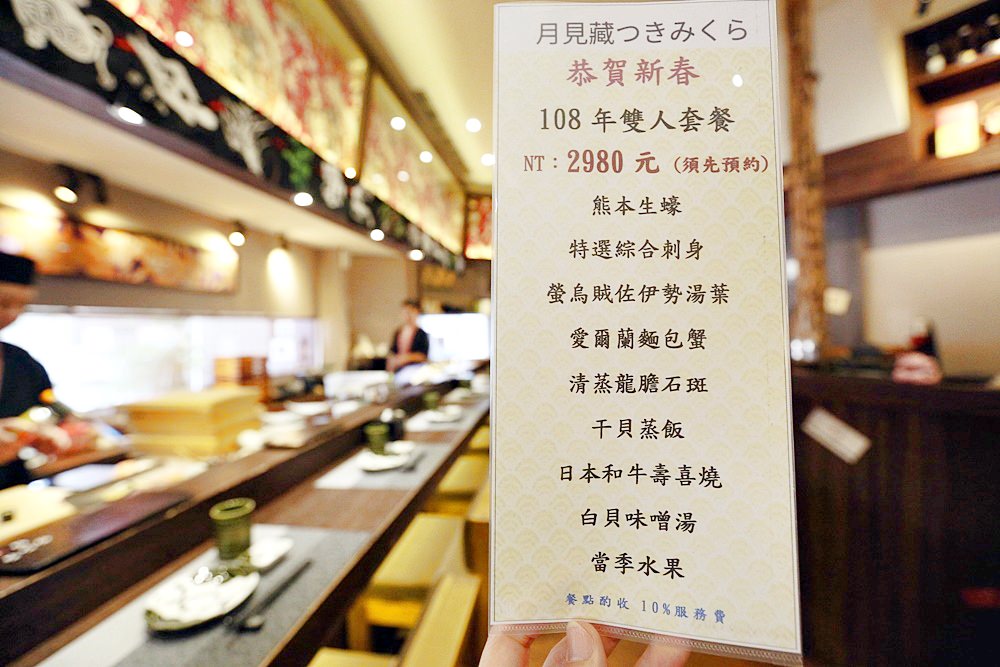 月見藏つきみくら
恭賀新春
108 年雙人套餐
NT：2980 元（須先預約）
熊本生蠔
特選綜合刺身
螢烏賊佐伊勢湯葉
愛爾蘭麵包蟹
清蒸龍膽石斑
干貝蒸飯
日本和牛壽喜燒
白貝味噌湯
當季水果
餐點酌收 10%服務費